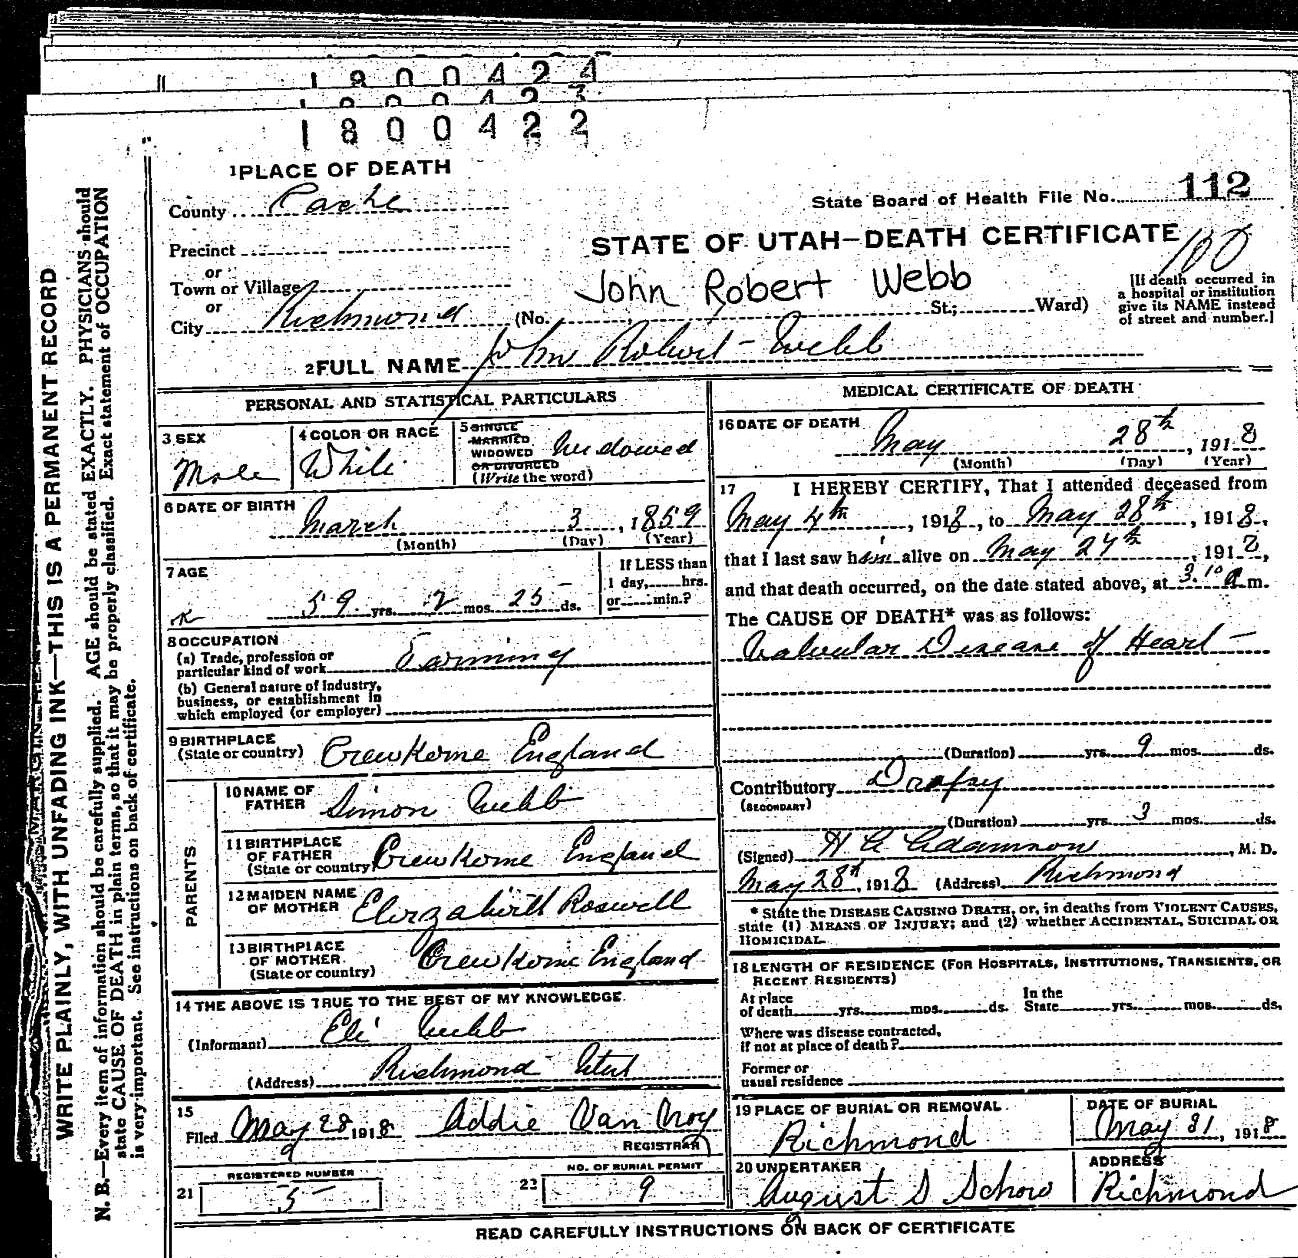 1800424
1800423
1800422
WRITE PLAINLY, WITH UNFADING INK—THIS IS A PERMANENT RECORD
N. B.—Every item of information should be carefully supplied. AGE should be stated EXACTLY. PHYSICIANS should
state CAUSE OF DEATH in plain terms, so that it may be properly classified. Exact statement of OCCUPATION
is very important. See instructions on back of certificate.
1 PLACE OF DEATH
County Cache
State Board of Health File No. 112
Precinct
STATE OF UTAH—DEATH CERTIFICATE
or
Town or Village
John Robert Webb
or
City Richmond (No. St; Ward)
[If death occurred in
a hospital or institution
give its NAME instead
of street and number.]
2 FULL NAME John Robert Webb
PERSONAL AND STATISTICAL PARTICULARS
3 SEX
Male
4 COLOR OR RACE
White
5 SINGLE
MARRIED
WIDOWED
OR DIVORCED
(Write the word)
Widowed
6 DATE OF BIRTH
March 3, 1859
(Month) (Day) (Year)
7 AGE
59 yrs. 2 mos. 25 ds.
If LESS than
1 day, hrs.
or min.?
8 OCCUPATION
(a) Trade, profession or
particular kind of work Farming
(b) General nature of industry,
business, or establishment in
which employed (or employer)
9 BIRTHPLACE
(State or country) Crewkerne England
PARENTS
10 NAME OF
FATHER Simon Webb
11 BIRTHPLACE
OF FATHER
(State or country) Crewkerne England
12 MAIDEN NAME
OF MOTHER Elizabeth Roswell
13 BIRTHPLACE
OF MOTHER
(State or country) Crewkerne England
14 THE ABOVE IS TRUE TO THE BEST OF MY KNOWLEDGE.
(Informant) Eli Webb
(Address) Richmond Utah
15
Filed May 28 1918 Addie Van Orey
REGISTRAR
REGISTERED NUMBER
21 5
NO. OF BURIAL PERMIT
22 9
MEDICAL CERTIFICATE OF DEATH
16 DATE OF DEATH
May 28th, 1918
(Month) (Day) (Year)
17 I HEREBY CERTIFY, That I attended deceased from
May 4th, 1918, to May 28th, 1918,
that I last saw him alive on May 27th, 1918,
and that death occurred, on the date stated above, at 3.10 a m.
The CAUSE OF DEATH* was as follows:
Valvular Disease of Heart
(Duration) yrs. 9 mos. ds.
Contributory Dropsy
(SECONDARY)
(Duration) yrs. 3 mos. ds.
(Signed) H G Adamson, M. D.
May 28th, 1918 (Address) Richmond
* State the DISEASE CAUSING DEATH, or, in deaths from VIOLENT CAUSES,
state (1) MEANS OF INJURY; and (2) whether ACCIDENTAL, SUICIDAL OR
HOMICIDAL.
18 LENGTH OF RESIDENCE (FOR HOSPITALS, INSTITUTIONS, TRANSIENTS, OR
RECENT RESIDENTS)
At place
of death yrs. mos. ds.
In the
State yrs. mos. ds.
Where was disease contracted,
if not at place of death?
Former or
usual residence
19 PLACE OF BURIAL OR REMOVAL
Richmond
DATE OF BURIAL
May 31, 1918
20 UNDERTAKER
August S Schow
ADDRESS
Richmond
READ CAREFULLY INSTRUCTIONS ON BACK OF CERTIFICATE